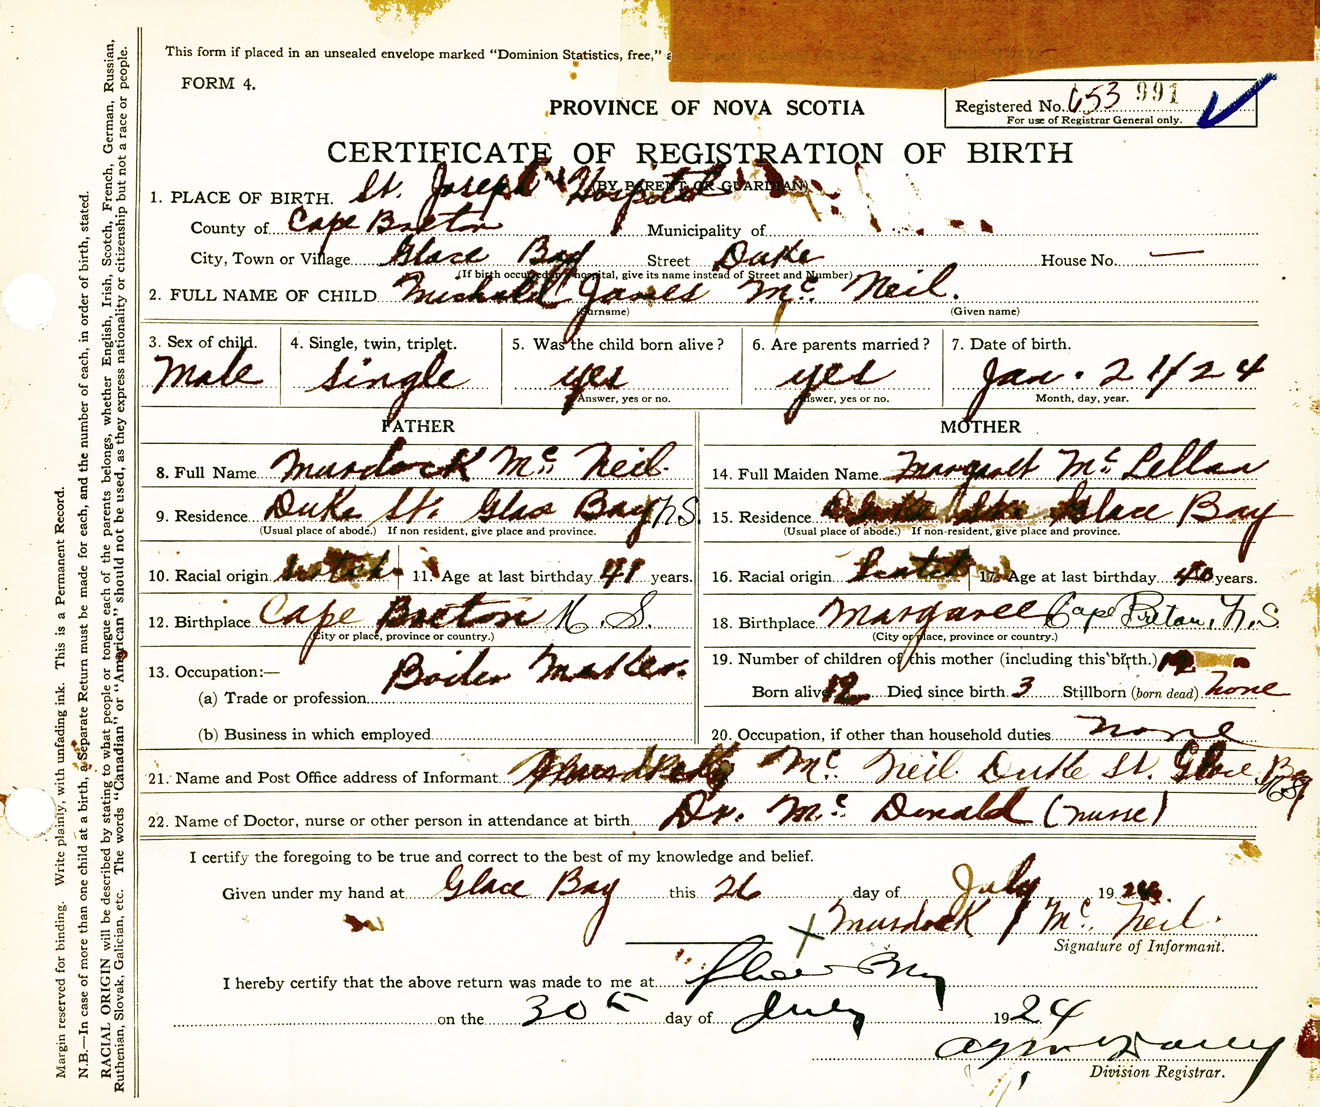 This form if placed in an unsealed envelope marked "Dominion Statistics, free,"
FORM 4.
PROVINCE OF NOVA SCOTIA
Registered No. 653 991
For use of Registrar General only.
CERTIFICATE OF REGISTRATION OF BIRTH
(BY PARENT OR GUARDIAN)
1. PLACE OF BIRTH. St. Joseph's Hospital
County of Cape Breton Municipality of
City, Town or Village Glace Bay Street Duke House No. —
(If birth occurred in hospital, give its name instead of Street and Number)
2. FULL NAME OF CHILD James Mc Neil.
(Surname) (Given name)
3. Sex of child. 4. Single, twin, triplet. 5. Was the child born alive? 6. Are parents married? 7. Date of birth.
Male single yes yes Jan. 21/24
Answer, yes or no. Answer, yes or no. Month, day, year.
FATHER MOTHER
8. Full Name Murdock Mc Neil 14. Full Maiden Name Margaret McLellan
9. Residence Duke St. Glace Bay N.S. 15. Residence Duke St. Glace Bay
(Usual place of abode.) If non resident, give place and province. (Usual place of abode.) If non-resident, give place and province.
10. Racial origin Scotch 11. Age at last birthday 41 years. 16. Racial origin Scotch 17. Age at last birthday 40 years.
12. Birthplace Cape Breton N.S. 18. Birthplace Margaree Cape Breton, N.S.
(City or place, province or country.) (City or place, province or country.)
13. Occupation:— Boiler Maker. 19. Number of children of this mother (including this birth.) 12
(a) Trade or profession Born alive 12 Died since birth 3 Stillborn (born dead) none
(b) Business in which employed 20. Occupation, if other than household duties none
21. Name and Post Office address of Informant Mc Neil Duke St. Glace Bay N.S.
22. Name of Doctor, nurse or other person in attendance at birth Dr. Mc Donald (nurse)
I certify the foregoing to be true and correct to the best of my knowledge and belief.
Given under my hand at Glace Bay this 26 day of July 1924
X Murdock J Mc Neil
Signature of Informant.
I hereby certify that the above return was made to me at Glace Bay
on the 30 day of July 1924
Division Registrar.
Margin reserved for binding. Write plainly, with unfading ink. This is a Permanent Record.
N.B.—In case of more than one child at a birth, a Separate Return must be made for each, and the number of each, in order of birth, stated.
RACIAL ORIGIN will be described by stating to what people or tongue each of the parents belongs, whether English, Irish, Scotch, French, German, Russian,
Ruthenian, Slovak, Galician, etc. The words "Canadian" or "American" should not be used, as they express nationality or citizenship but not a race or people.